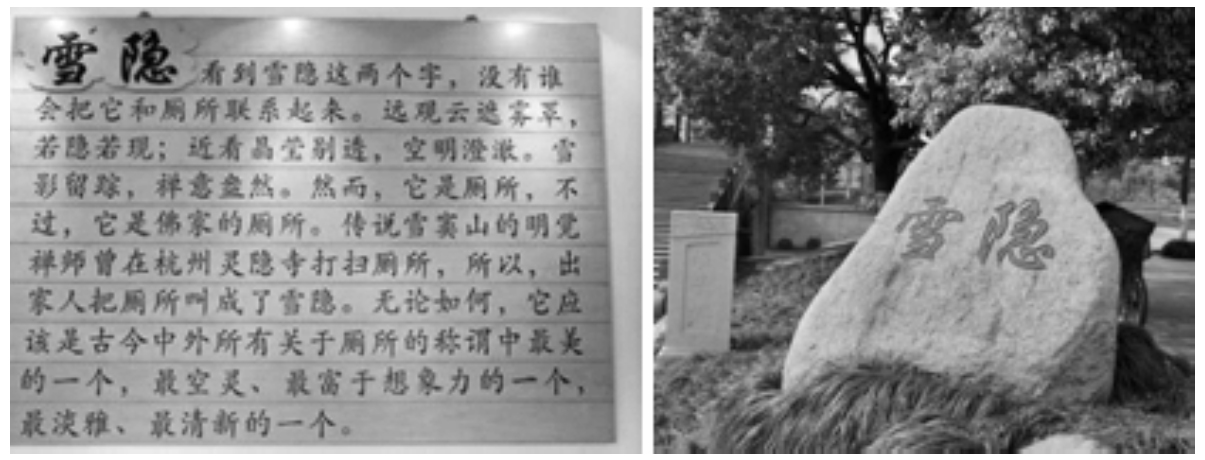 雪隐
看到雪隐这两个字，没有谁
会把它和厕所联系起来。远观云遮雾罩，
若隐若现；近看晶莹剔透，空明澄澈。雪
影留踪，禅意盎然。然而，它是厕所，不
过，它是佛家的厕所。传说雪窦山的明觉
禅师曾在杭州灵隐寺打扫厕所，所以，出
家人把厕所叫成了雪隐。无论如何，它应
该是古今中外所有关于厕所的称谓中最美
的一个，最空灵、最富于想象力的一个，
最淡雅、最清新的一个。
雪隐